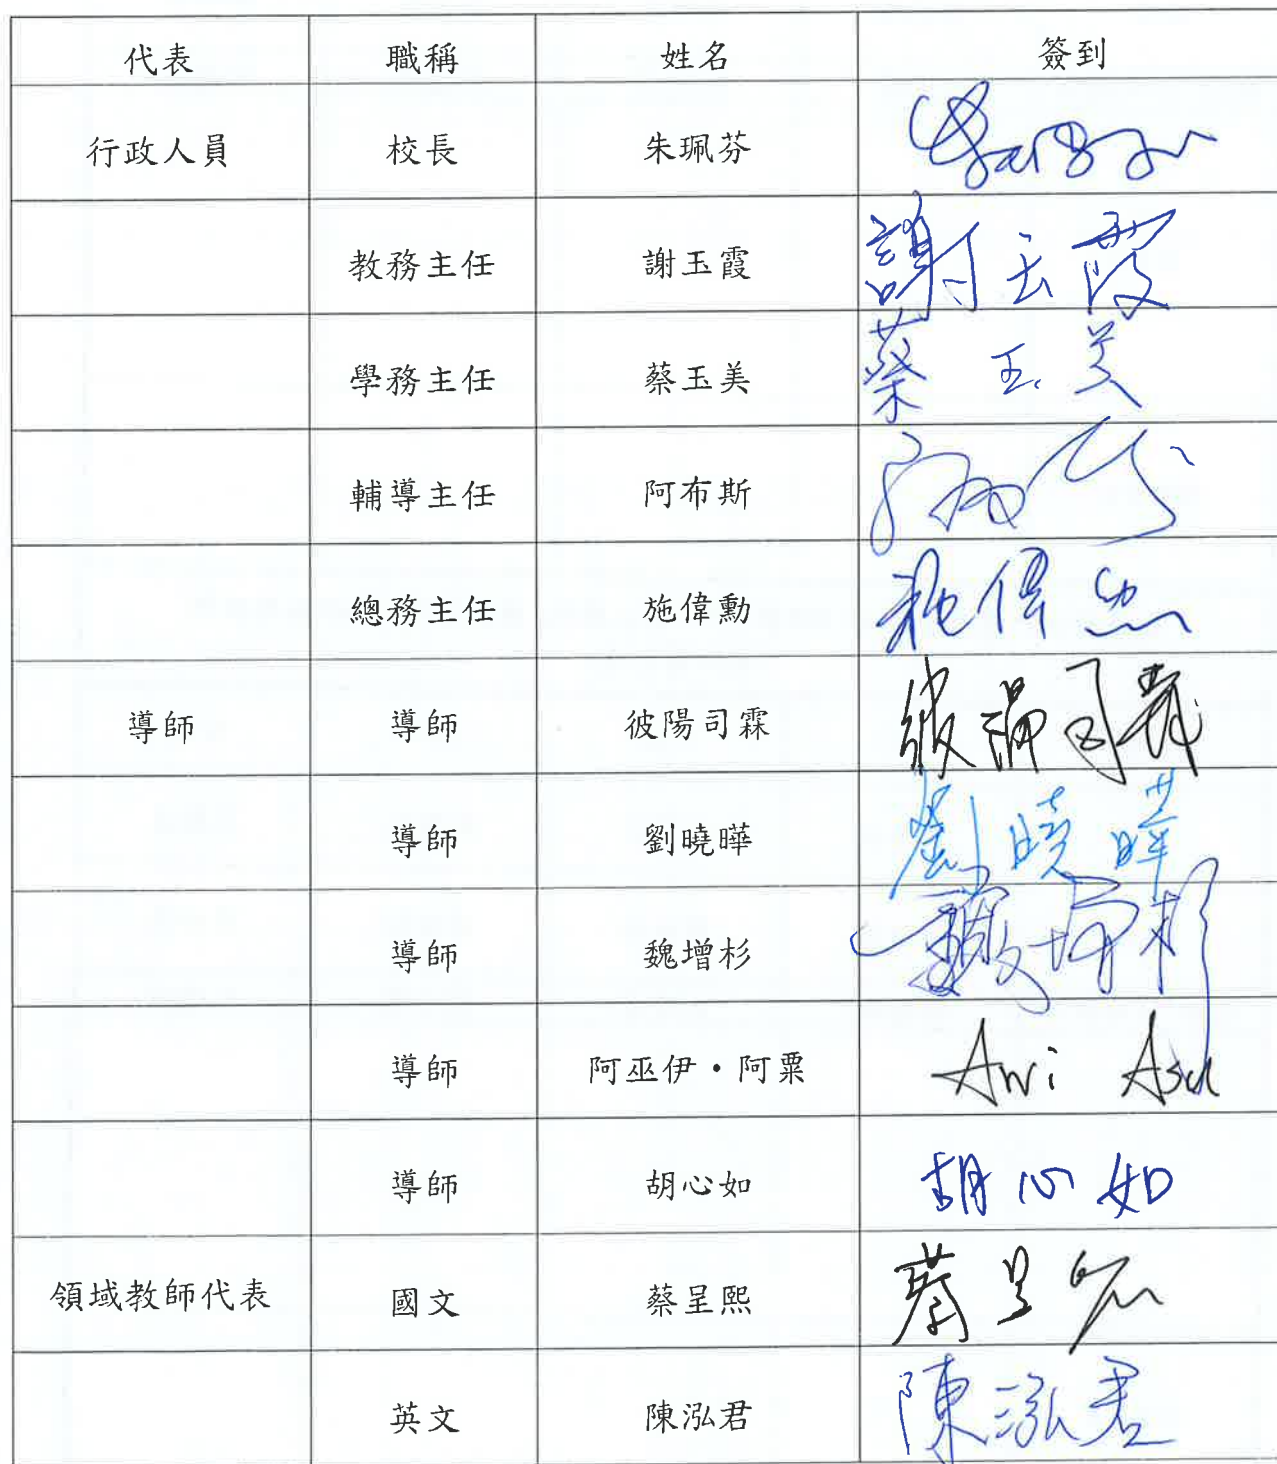 代表 職稱 姓名 簽到
行政人員 校長 朱珮芬
教務主任 謝玉霞 謝玉霞
學務主任 蔡玉美 蔡玉美
輔導主任 阿布斯
總務主任 施偉勳 施偉
導師 導師 彼陽司霖 彼陽司霖
導師 劉曉曄 劉曉曄
導師 魏增杉 魏增杉
導師 阿巫伊・阿粟 Awi Asu
導師 胡心如 胡心如
領域教師代表 國文 蔡呈熙 蔡呈熙
英文 陳泓君 陳泓君